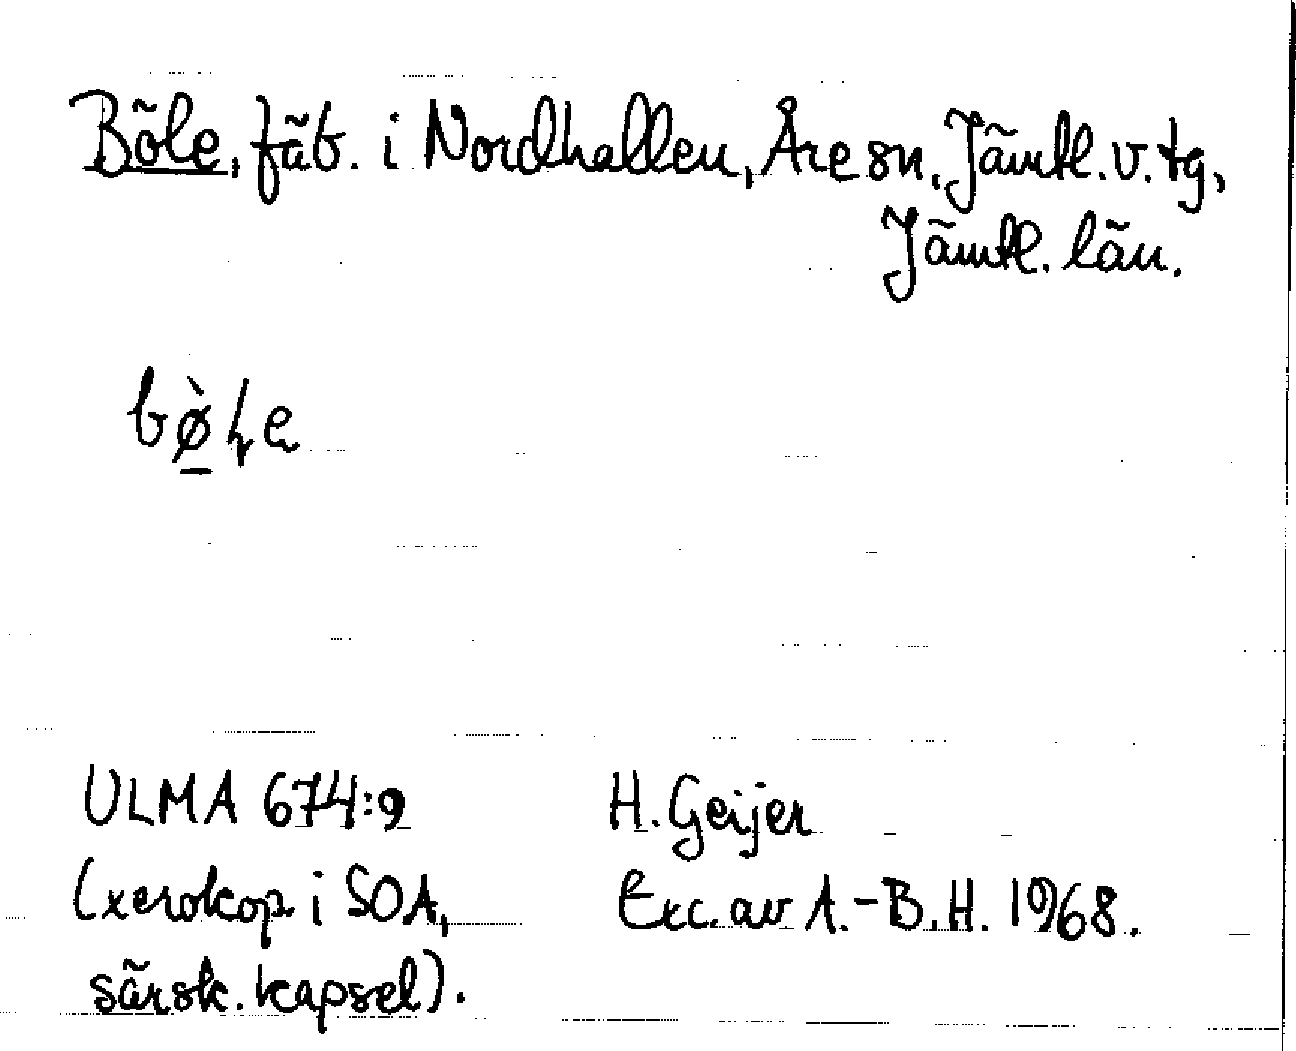 Böle, fäb. i Nordhallen, Åre sn, Jämtl. v. tg,
Jämtl. län.
bø̀le
ULMA 674:2 H. Geijer
(xerokop. i SOA, Exc. av A.-B.H. 1968.
särsk. kapsel).